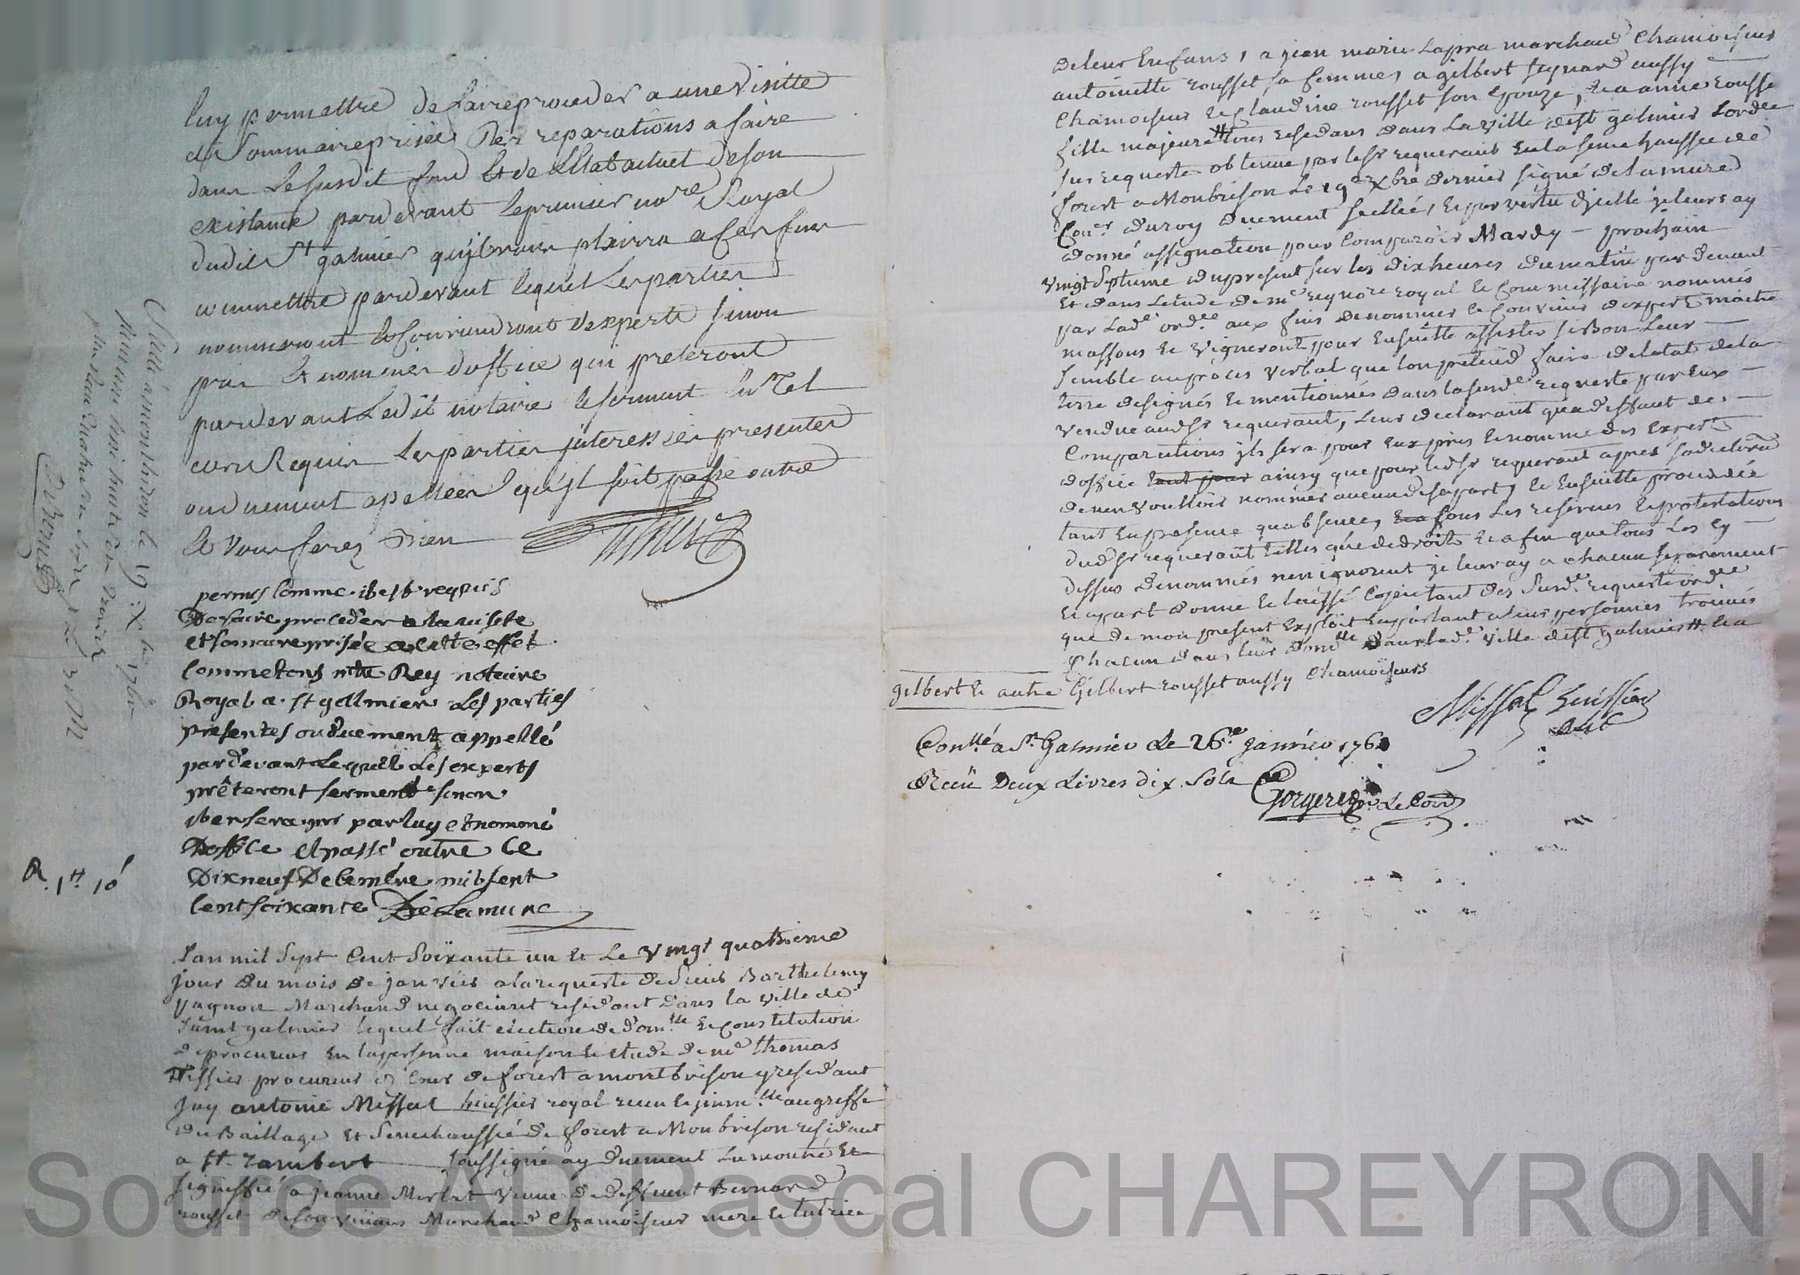 luy permettre de faire proceder a une visitte
et sommaire prisée des reparations a faire
dans le susdit fond et de l'Etat actuel de son
existance pardevant le premier no.re Royal
dudit St galmier qu'il vous plairra a ces fins
commettre pardevant lequel les parties
nommeront et conviendront d'experts sinon
pris et nommés d'office qui preteront
pardevant ledit notaire le serment en tel
cas Requis les parties interessées presentes
ou duement apellées qu'il soit passé outre
et vous feres bien
permis comme il est requis
De faire proceder a la visite
et somaire prisée a cette effet
commetons mtre Rey notaire
Royal a st gallmier les parties
présentes ou duement appellé
pardevant Lequel les experts
prêteront serment sinon
il en sera pris par luy et nommé
Doffice et passé outre ce
Dix neuf Decembre mil sept
cent soixante DeLamure
R. 1tt 10s
Scellé a montbrison le 19 Xbre 1760
L'an mil sept cent soixante un et le vingt quatrieme
jour du mois de janvier a la requeste de sieur Barthelemy
Marchand negociant residant dans la ville de
saint galmier lequel fait élection de dom.lle et constitution
de procureur en la personne maison et etude de me thomas
Tissier procureur es cour de forest a montbrison y residant
jay antoine Missat huissier royal receu et jmm.lle au greffe
du Baillage et Senechaussée de forest a Monbrison residant
a st. rambert soussigné ay duement Eu montré et
signiffié a jeanne Merlat veuve de deffunt Bernard
rousset de son vivant Marchand chamoiseur mere et tutrice
de leur Enfans, a jean marie Lapra marchand chamoiseur
antoinette rousset sa femme, a gilbert aussy
chamoiseur et claudine rousset son Epouze, et a anne rousset
fille majeure tous residans dans la ville de st galmier Lord.ce
sur requeste obtenue par le sr requerant En la senechaussée de
forest a Monbrison le 19e Xbre dernier signé delamure
Con.er du roy duement scellée, et par vertu d'jcelle je leur ay
donné assignation pour comparoir Mardy prochain
vingt septieme du present sur les dix heures du matin par devant
Et dans Letude de me rey no.re royal et commissaire nommés
par Lad.e ord.ce aux fins de nommer et convenir d'expert maitre
massons et vigneront pour Ensuitte assister si Bon Leur
semble au proces verbal que lon pretend faire de letat de la
terre designés et mentionnés dans la susd.e requeste par Eux
vendue aud sr requerant, Leur declarant qu'a deffaut de
comparutions jls sera pour Eux pris et nommé des Expert
d'office ainsy que pour led sr requerant apres
de nen vouloir nommer aucun de sa part, et Ensuitte procedée
tant En presence qu'absence, sous Les reserves et protestations
dud sr requerant telles que de droit et afin que tous Les cy
dessus denommés nen ignorent je leur ay a chacun separement
Et apart donné et laissé copie tant des susd.e requeste ord.ce
que de mon present Exploit En parlant a leur personnes trouvés
chacun dans leur dom.lle dans lad.e ville de st galmier et a
gilbert et autre Gilbert rousset aussy chamoiseurs
Missat huissier
Conllé a St. Galmier Le 26e. Janvier 1761
Receu Deux Livres dix Sols Gorgeret